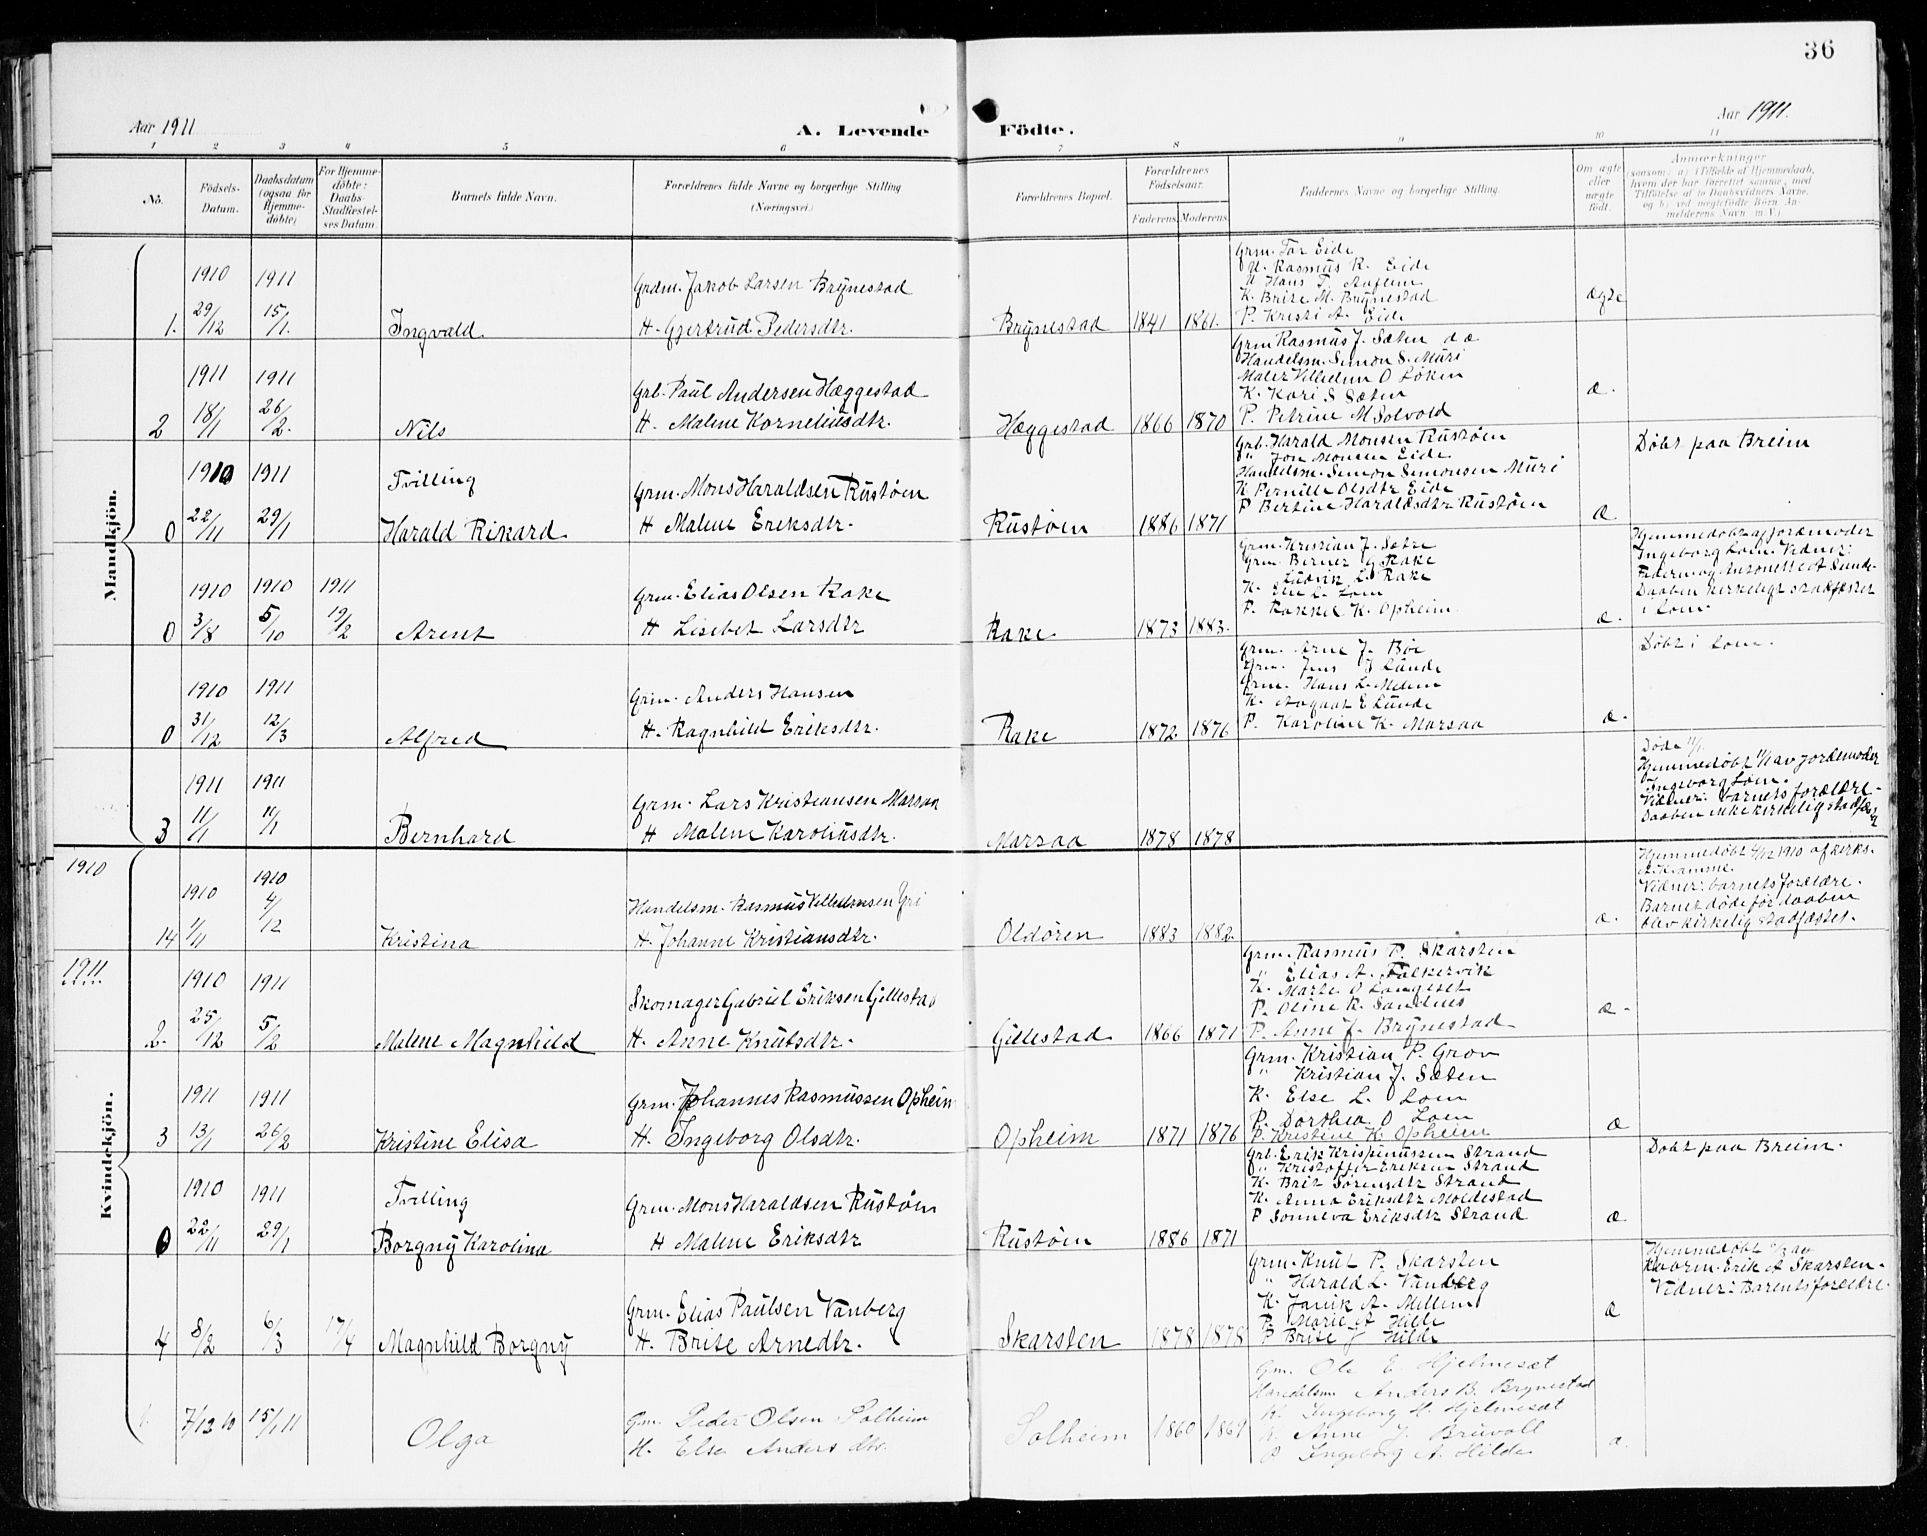 36
Aar 1911
A. Levende
Födte.
Aar 1911.
1 2 3 4 5 6 7 8 9 10 11
No.
Födsels-
Datum.
Daabsdatum
(ogsaa for
Hjemme-
döbte)
For Hjemme-
döbte:
Daabs-
Stadfæstel-
ses Datum.
Barnets fulde Navn.
Forældrenes fulde Navne og borgerlige Stilling
(Næringsvei.)
Forældrenes Bopæl.
Forældrenes
Födselsaar.
Faderens
Moderens
Faddernes Navne og borgerlige Stilling.
Om ægte
eller
uægte
födt.
Anmærkninger
saasom: a) i Tilfælde af Hjemmedaab,
hvem der har forrettet samme, med
Tilföielse af to Daabsvidners Navne,
og b) ved uægtefödte Börn An-
melderens Navn m. V.)
Mandkjön.
1. 1910 29/12 1911 15/1. Ingvald
Grdm. Jakob Larsen Brynestad
H. Gjertrud Pedersdtr.
Brynestad 1841 1861.
Grm. Tor Eide
U. Rasmus R. Eide
U Hans T. Aaflem
K. Brite M. Brynestad
P. Kristi A. Eide
ægte
2 1911 18/1 1911 26/2. Nils
Grb. Paul Andersen Hæggestad
H. Malene Korneliusdtr.
Hæggestad 1866 1870
Grm Rasmus J. Sæten d æ
Handelsm. Simon S. Muri
Maler Villedum O Løken
K. Kari S Sæten
P. Petrine M Solvold
æ.
0 1910 22/11 1911 29/1 Tvilling
Harald Rikard
Grm. Mons Haraldsen Rustøen
H Malene Eriksdtr.
Rustøen 1886 1871
Grb. Harald Monsen Rustøen
" Jon Monsen Eide
Handelsm. Simon Simonsen Muri
K Pernille Olsdtr Eide
P Bertine Haraldsdtr Rustøen
æ
Døbt paa Breim
0 1910 3/8 1910 5/10 1911 19/2 Arent
Grm. Elias Olsen Rake
H Lisebet Larsdtr
Rake 1873 1883.
Grm. Kristian J. Sætre
Grm. Berner G Rake
Ludvik L. Rake
K. Eli L. Loen
P. Rakkel K. Opheim
æ.
Hjemmedøbt af jordemoder
Ingeborg Loen. Vidner:
Faderen og Antonette A Sunde
Daaben kirkeligt stadfæstet
i Loen.
0 1910 31/12 1911 12/3 Alfred
Grm. Anders Hansen
H. Ragnhild Eriksdtr.
Rake 1872 1876
Grm. Arne J. Bøe
Grm. Jens J Sunde
Grm. Hans L. Melem
K. Aagaat E Sunde
P. Karoline K. Marsaa
æ.
Døbt i Loen.
3 1911 11/1 1911 11/1 Bernhard
Grm. Lars Kristiansen Marsaa
H Malene Karoliusdtr.
Marsaa 1878 1878
Døde 11/1.
Hjemmedøbt 11/1 av jordemoder
Ingeborg Loen.
Vidner: barnets forældre.
Daaben ikke kirkelig stadfæstet
Kvindekjön.
1910
14 1910 1/11 1910 4/12 Kristina
Handelsm. Rasmus Villumsen Gri
H. Johanne Kristiansdtr.
Oldøren 1883 1882
æ.
Hjemmedøbt 4/12 1910 af kirks.
A. Kvamme.
Vidner: barnets forældre.
Barnet døde før daaben
blev kirkelig stadfæstet.
1911
2. 1910 25/12 1911 5/2 Malene Magnhild
Skomager Gabriel Eriksen Gillestad
H. Anne Knutsdtr.
Gillestad 1866 1871
Grm. Rasmus P. Skarsten
" Elias A. Falkervik
K. Marte O Langeset
P. Oline R. Sandnes
P. Anne J. Brynestad
æ.
3 1911 13/1 1911 26/2 Kristine Elisa
Grm. Johannes Rasmussen Opheim
H. Ingeborg Olsdtr.
Opheim 1871 1876
Grm. Kristian P. Grov
" Kristian J. Sæten
K. Else L. Loen
P. Dorthea O Loen
P. Kristine K. Opheim
æ
0 1910 22/11 1911 29/1 Tvilling
Borgny Karolina
Grm. Mons Haraldsen Rustøen
H Malene Eriksdtr
Rustøen 1886 1871
Grb. Erik Krispinussen Strand
" Kristoffer Eriksen Strand
K. Brit Sørensdtr Strand
K. Anna Eriksdtr Moldestad
P Sonneva Eriksdtr Strand
æ
Døbt paa Breim.
4 8/2 6/3 17/4 Magnhild Borgny
Grm. Elias Paulsen Vanberg
H. Brite Arnedtr.
Skarsten 1878 1878
Grm. Knut P. Skarsten
" Harald L. Vanberg
K. Janik A. Mellem
P. Marie A Hilde
P Brite J Hilde
æ
Hjemmedøbt av
Erik A Skarsten.
Vidner: Barnets forældre.
1. 7/12 10 15/1 11 Olga
Gm. Peder Olsen Solheim
H. Else Andersdtr.
Solheim 1860 1869
Gm. Ole E. Hjelmeset
Handelsm Anders B. Brynestad
K. Ingeborg H. Hjelmeset
K. Anne J. Bruvoll
P Ingeborg A. Hilde
æ.